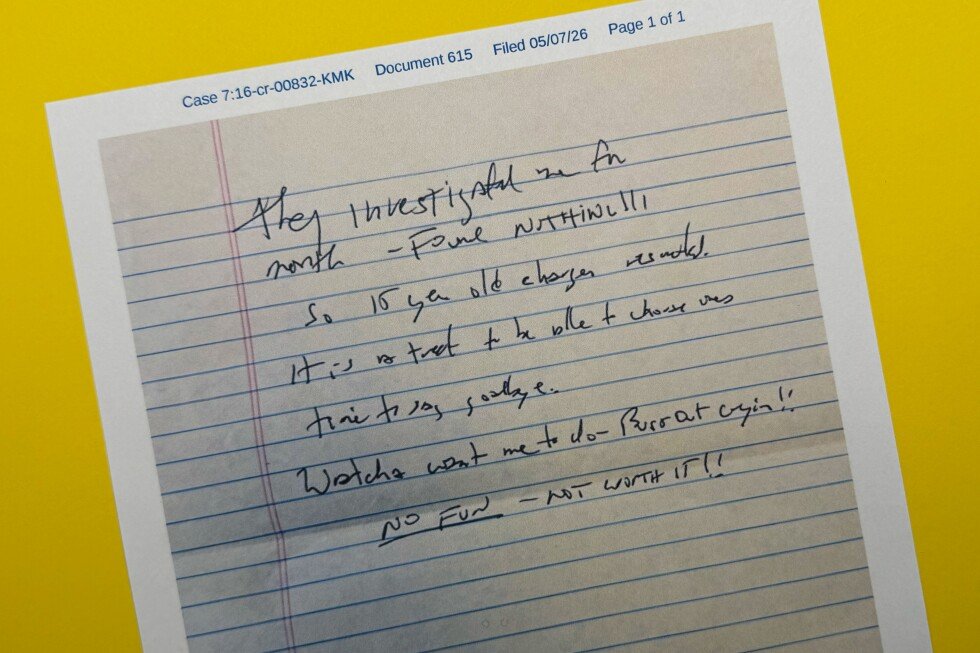 Case 7:16-cr-00832-KMK Document 615 Filed 05/07/26 Page 1 of 1
They investigated me for
month - Found NOTHING!!!
So 15 year old charges
It is a treat to be able to choose
time to say goodbye.
Watcha want me to do - Burst out cryin!!
NO FUN - NOT WORTH IT!!